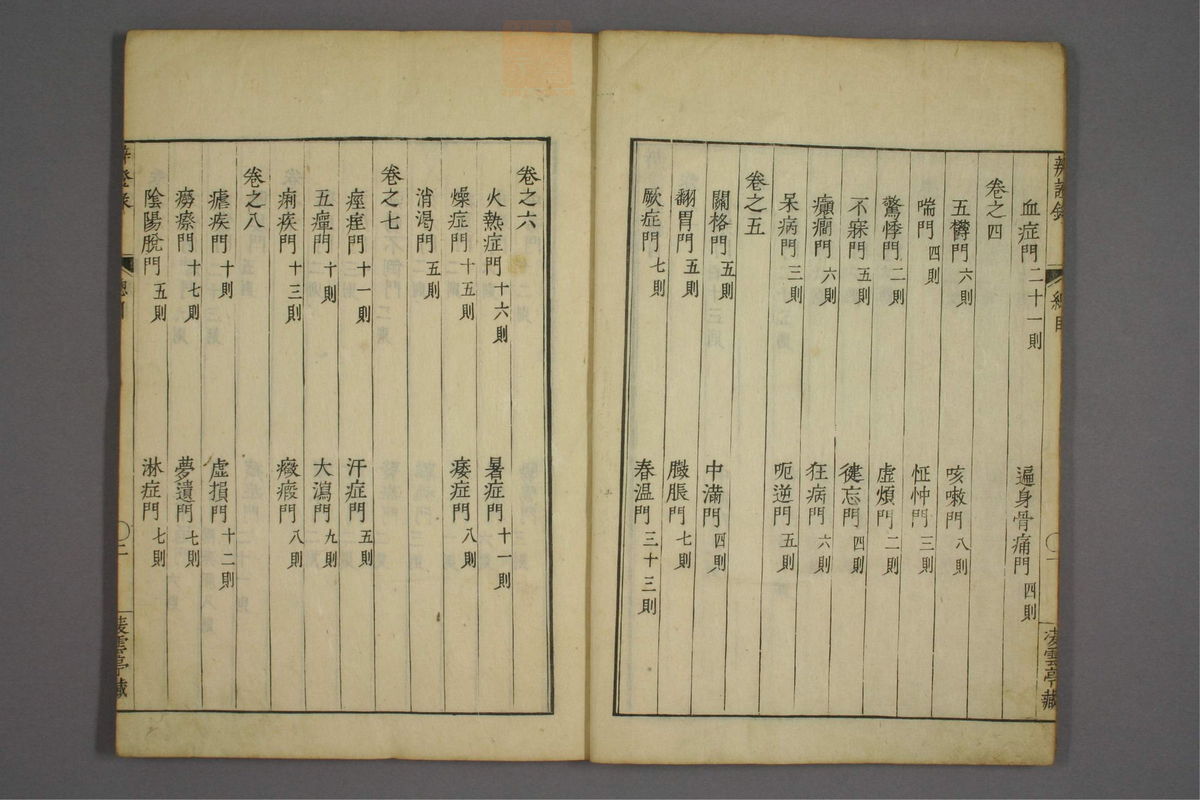 辨證錄 總目
血症門 二十一則 遍身骨痛門 四則
卷之四
五鬱門 六則 咳嗽門 八則
喘門 四則 怔忡門 三則
驚悸門 二則 虛煩門 二則
不寐門 五則 健忘門 四則
癲癇門 六則 狂病門 六則
呆病門 三則 呃逆門 五則
卷之五
關格門 五則 中滿門 四則
翻胃門 五則 臌脹門 七則
厥症門 七則 春溫門 三十三則
凌雲亭藏
卷之六
火熱症門 十六則 暑症門 十一則
燥症門 十五則 痿症門 八則
消渴門 五則
卷之七
痙痓門 十一則 汗症門 五則
五癉門 十則 大瀉門 九則
痢疾門 十三則 癥瘕門 八則
卷之八
瘧疾門 十則 虛損門 十二則
癆瘵門 十七則 夢遺門 七則
陰陽脫門 五則 淋症門 七則